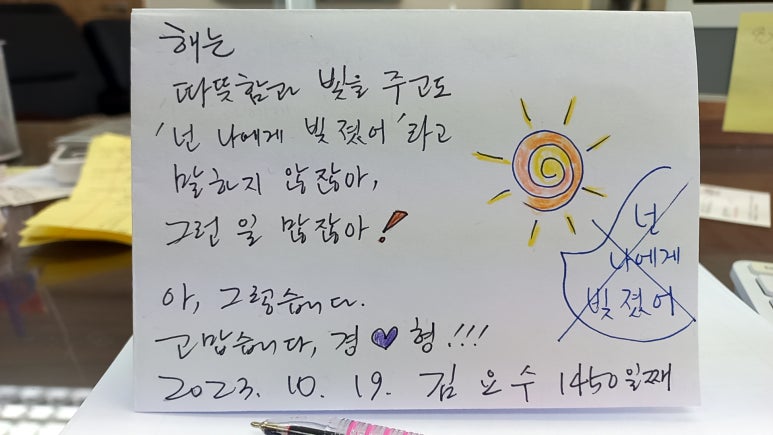 해는
따뜻함과 빛을 주고도
'넌 나에게 빚 졌어'라고
말하지 않잖아,
그런 일 많잖아!
넌
나에게
빚 졌어
아, 그렇습니다.
고맙습니다, 경♥형!!!
2023. 10. 19. 김 요 수 1450일째